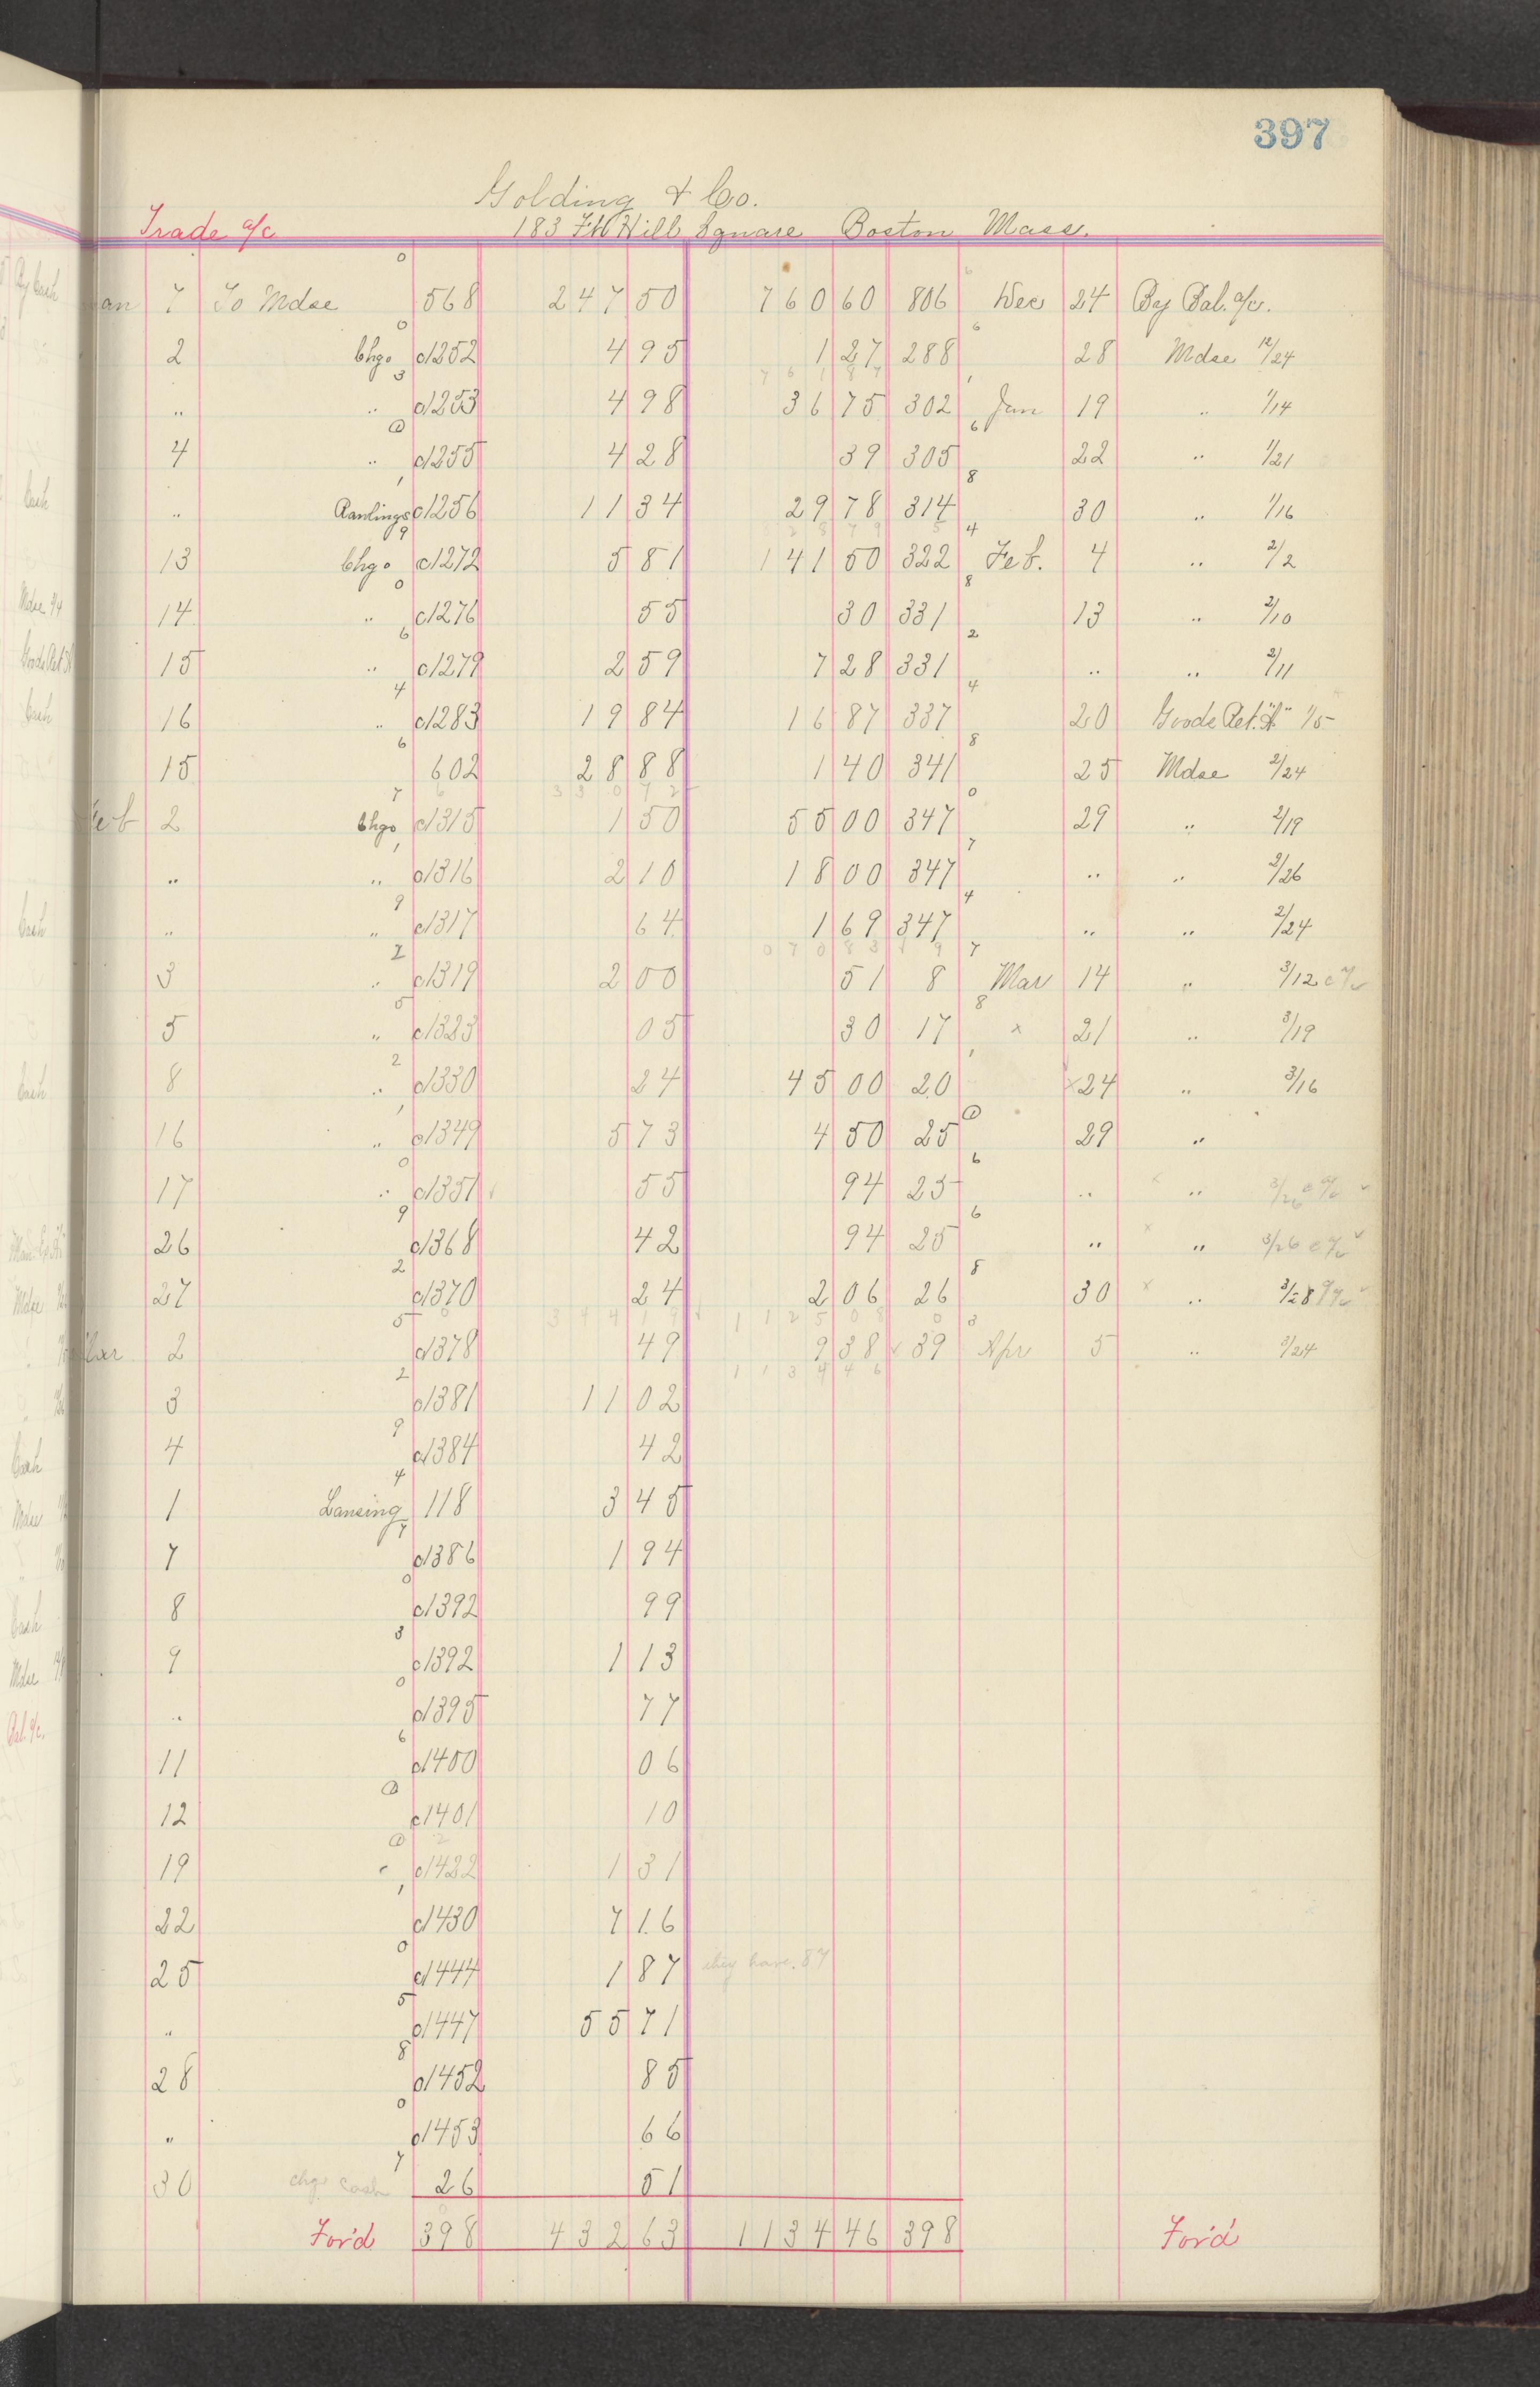 397
Golding & Co.
Trade a/c 183 Ft Hill Square Boston Mass.
0
an 7 To Mdse 568 247 50 760 60 806 Dec 24 By Bal. a/c.
0 6
2 Chgo c1252 4 95 1 27 288 28 Mdse 12/24
3 7 6 1 8 7 1
" " c1253 4 98 36 75 302 Jan 19 " 1/14
@ 6
4 " c1255 4 28 39 305 22 " 1/21
1 8
" Rawlings c1256 11 34 29 78 314 30 " 1/16
9 4
13 Chgo c1272 5 81 141 50 322 Feb. 4 " 2/2
0 8
14 " c1276 55 30 331 13 " 2/10
6 2
15 " c1279 2 59 7 28 331 " " 2/11
4 4
16 " c1283 19 84 16 87 337 20 Goods Ret. "A" 1/5
6 8
15 602 28 88 1 40 341 25 Mdse 2/24
7 3 3 0 7 2 0
Feb 2 Chgo c1315 1 50 55 00 347 29 " 2/19
1 7
" " c1316 2 10 18 00 347 " " 2/26
9 4
" " c1317 64 1 69 347 " " 2/24
2 7
3 " c1319 2 00 51 8 Mar 14 " 3/12
5 8
5 " c1323 05 30 17 x 21 " 3/19
2 1
8 " c1330 24 45 00 20 x 24 " 3/16
1 @
16 " c1349 5 73 4 50 25 29 "
0 6
17 " c1351 55 94 25 " "
9 6
26 c1368 42 94 25 " " 3/26
2 8
27 c1370 24 2 06 26 30 x " 3/28
5 1 1 2 5 0 8
Mar 2 c1378 49 9 38 39 Apr 5 " 3/24
2 1 1 3 4 4 6
3 c1381 11 02
9
4 c1384 42
4
1 Lansing 118 3 45
7
7 c1386 1 94
0
8 c1392 99
3
9 c1392 1 13
0
" c1395 77
6
11 c1400 06
@
12 c1401 10
@
19 " c1422 1 31
1
22 c1430 7 16
0
25 c1444 1 87 they have .87
5
" c1447 55 71
8
28 c1452 85
0
" c1453 66
7
30 chgo Cash 26 51
For'd 398 432 63 1134 46 398 For'd